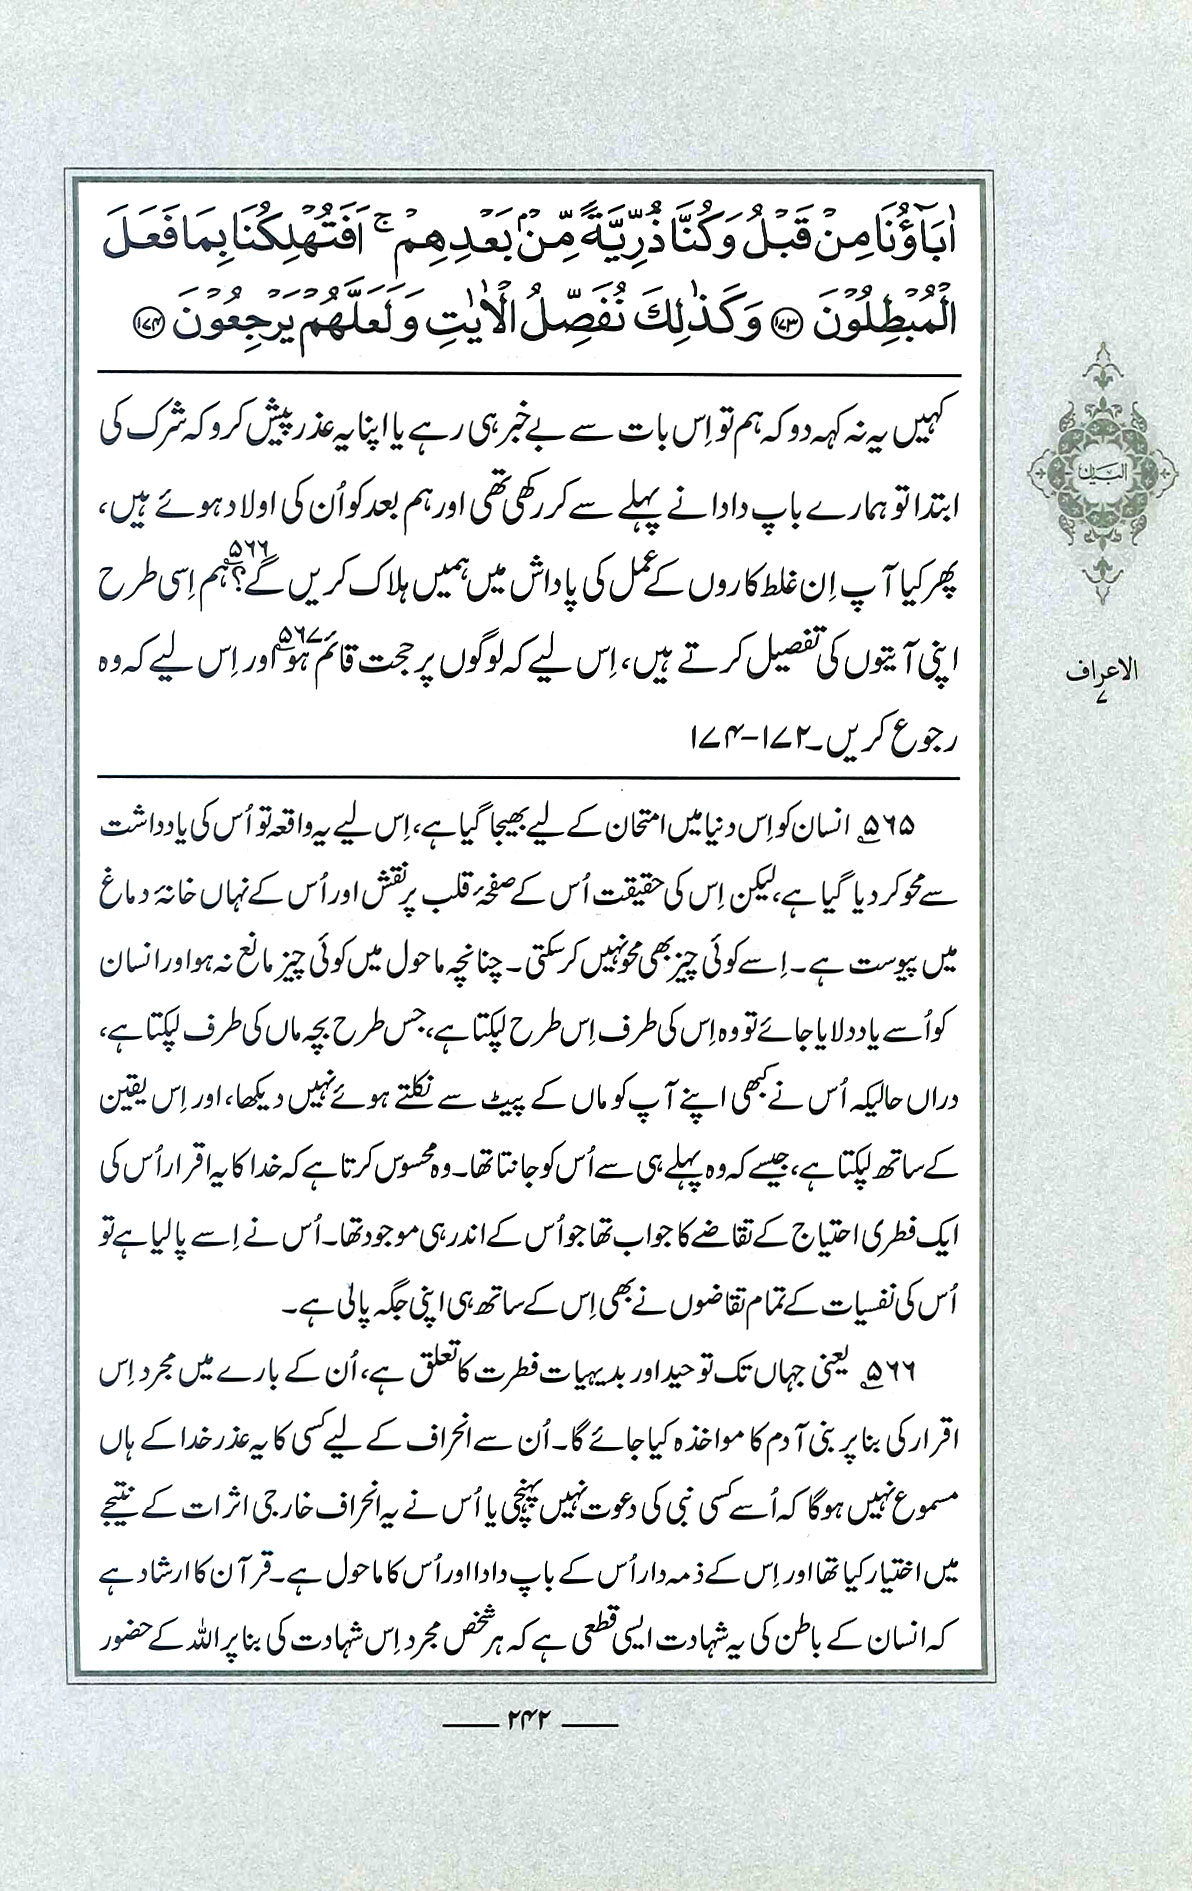 اٰبَآؤُنَا مِنْ قَبْلُ وَكُنَّا ذُرِّيَّةً مِّنْۢ بَعْدِهِمْ ۚ اَفَتُهْلِكُنَا بِمَا فَعَلَ
الْمُبْطِلُوْنَ ﴿۱۷۳﴾ وَكَذٰلِكَ نُفَصِّلُ الْاٰيٰتِ وَلَعَلَّهُمْ يَرْجِعُوْنَ ﴿۱۷۴﴾
کہیں یہ نہ کہہ دو کہ ہم تو اِس بات سے بے خبر ہی رہے یا اپنا یہ عذر پیش کرو کہ شرک کی
ابتدا تو ہمارے باپ دادا نے پہلے سے کر رکھی تھی اور ہم بعد کو اُن کی اولاد ہوئے ہیں،
پھر کیا آپ اِن غلط کاروں کے عمل کی پاداش میں ہمیں ہلاک کریں گے؟۵۶۶ ہم اِسی طرح
اپنی آیتوں کی تفصیل کرتے ہیں، اِس لیے کہ لوگوں پر حجت قائم ہو۵۶۷ اور اِس لیے کہ وہ
رجوع کریں۔ ۱۷۲-۱۷۴
۵۶۵؎ انسان کو اِس دنیا میں امتحان کے لیے بھیجا گیا ہے، اِس لیے یہ واقعہ تو اُس کی یادداشت
سے محو کر دیا گیا ہے، لیکن اِس کی حقیقت اُس کے صفحۂ قلب پر نقش اور اُس کے نہاں خانۂ دماغ
میں پیوست ہے۔ اِسے کوئی چیز بھی محو نہیں کر سکتی۔ چنانچہ ماحول میں کوئی چیز مانع نہ ہو اور انسان
کو اُسے یاد دلایا جائے تو وہ اِس کی طرف اِس طرح لپکتا ہے، جس طرح بچہ ماں کی طرف لپکتا ہے،
دراں حالیکہ اُس نے کبھی اپنے آپ کو ماں کے پیٹ سے نکلتے ہوئے نہیں دیکھا، اور اِس یقین
کے ساتھ لپکتا ہے، جیسے کہ وہ پہلے ہی سے اُس کو جانتا تھا۔ وہ محسوس کرتا ہے کہ خدا کا یہ اقرار اُس کی
ایک فطری احتیاج کے تقاضے کا جواب تھا جو اُس کے اندر ہی موجود تھا۔ اُس نے اِسے پا لیا ہے تو
اُس کی نفسیات کے تمام تقاضوں نے بھی اِس کے ساتھ ہی اپنی جگہ پالی ہے۔
۵۶۶؎ یعنی جہاں تک توحید اور بدیہیات فطرت کا تعلق ہے، اُن کے بارے میں مجرد اِس
اقرار کی بنا پر بنی آدم کا مواخذہ کیا جائے گا۔ اُن سے انحراف کے لیے کسی کا یہ عذر خدا کے ہاں
مسموع نہیں ہوگا کہ اُسے کسی نبی کی دعوت نہیں پہنچی یا اُس نے یہ انحراف خارجی اثرات کے نتیجے
میں اختیار کیا تھا اور اِس کے ذمہ دار اُس کے باپ دادا اور اُس کا ماحول ہے۔ قرآن کا ارشاد ہے
کہ انسان کے باطن کی یہ شہادت ایسی قطعی ہے کہ ہر شخص مجرد اِس شہادت کی بنا پر اللہ کے حضور
البیان
الاعراف
۷
۲۴۲